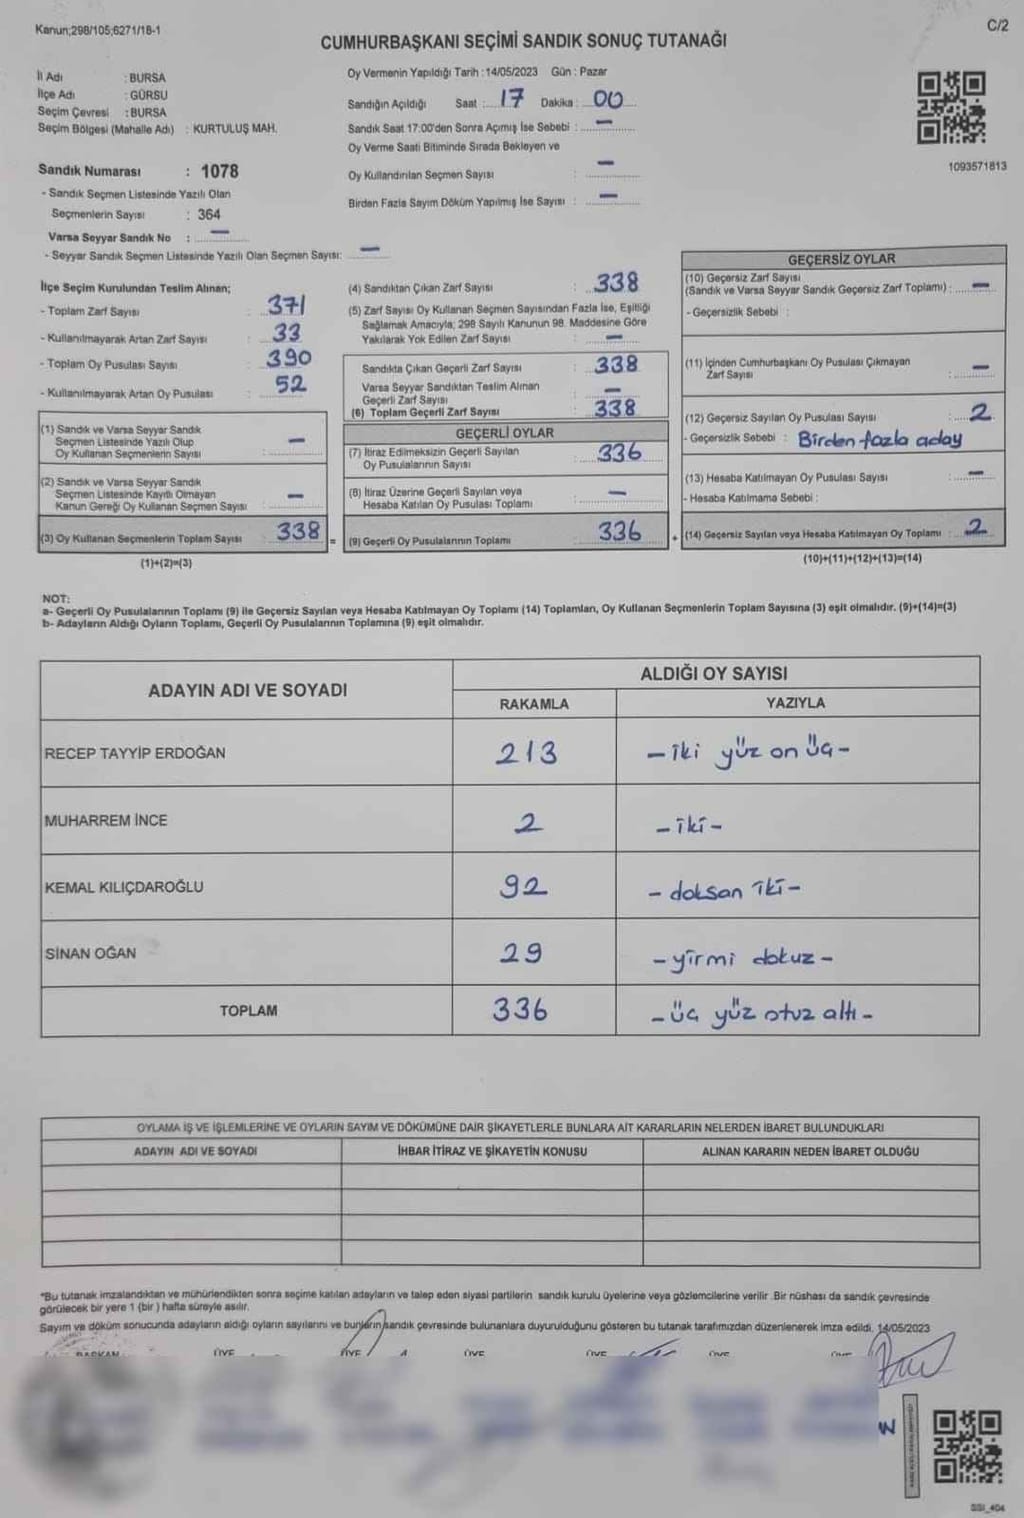 Kanun;298/105;6271/18-1
C/2
CUMHURBAŞKANI SEÇİMİ SANDIK SONUÇ TUTANAĞI
İl Adı : BURSA
İlçe Adı : GÜRSU
Seçim Çevresi : BURSA
Seçim Bölgesi (Mahalle Adı) : KURTULUŞ MAH.
Sandık Numarası : 1078
- Sandık Seçmen Listesinde Yazılı Olan
Seçmenlerin Sayısı : 364
Varsa Seyyar Sandık No : —
- Seyyar Sandık Seçmen Listesinde Yazılı Olan Seçmen Sayısı: —
Oy Vermenin Yapıldığı Tarih : 14/05/2023 Gün : Pazar
Sandığın Açıldığı Saat : 17 Dakika : 00
Sandık Saat 17:00'den Sonra Açımış İse Sebebi : —
Oy Verme Saati Bitiminde Sırada Bekleyen ve
Oy Kullandırılan Seçmen Sayısı : —
Birden Fazla Sayım Döküm Yapılmış İse Sayısı : —
1093571813
İlçe Seçim Kurulundan Teslim Alınan;
- Toplam Zarf Sayısı : 371
- Kullanılmayarak Artan Zarf Sayısı : 33
- Toplam Oy Pusulası Sayısı : 390
- Kullanılmayarak Artan Oy Pusulası : 52
(1) Sandık ve Varsa Seyyar Sandık
Seçmen Listesinde Yazılı Olup
Oy Kullanan Seçmenlerin Sayısı : —
(2) Sandık ve Varsa Seyyar Sandık
Seçmen Listesinde Kayıtlı Olmayan
Kanun Gereği Oy Kullanan Seçmen Sayısı : —
(3) Oy Kullanan Seçmenlerin Toplam Sayısı : 338 =
(1)+(2)=(3)
(4) Sandıktan Çıkan Zarf Sayısı : 338
(5) Zarf Sayısı Oy Kullanan Seçmen Sayısından Fazla İse, Eşitliği
Sağlamak Amacıyla; 298 Sayılı Kanunun 98. Maddesine Göre
Yakılarak Yok Edilen Zarf Sayısı : —
Sandıkta Çıkan Geçerli Zarf Sayısı : 338
Varsa Seyyar Sandıktan Teslim Alınan
Geçerli Zarf Sayısı : —
(6) Toplam Geçerli Zarf Sayısı : 338
GEÇERLİ OYLAR
(7) İtiraz Edilmeksizin Geçerli Sayılan
Oy Pusulalarının Sayısı : 336
(8) İtiraz Üzerine Geçerli Sayılan veya
Hesaba Katılan Oy Pusulası Toplamı : —
(9) Geçerli Oy Pusulalarının Toplamı : 336 +
GEÇERSİZ OYLAR
(10) Geçersiz Zarf Sayısı
(Sandık ve Varsa Seyyar Sandık Geçersiz Zarf Toplamı) : —
- Geçersizlik Sebebi :
(11) İçinden Cumhurbaşkanı Oy Pusulası Çıkmayan
Zarf Sayısı : —
(12) Geçersiz Sayılan Oy Pusulası Sayısı : 2
- Geçersizlik Sebebi : Birden fazla aday
(13) Hesaba Katılmayan Oy Pusulası Sayısı : —
- Hesaba Katılmama Sebebi :
(14) Geçersiz Sayılan veya Hesaba Katılmayan Oy Toplamı : 2
(10)+(11)+(12)+(13)=(14)
NOT:
a- Geçerli Oy Pusulalarının Toplamı (9) ile Geçersiz Sayılan veya Hesaba Katılmayan Oy Toplamı (14) Toplamları, Oy Kullanan Seçmenlerin Toplam Sayısına (3) eşit olmalıdır. (9)+(14)=(3)
b- Adayların Aldığı Oyların Toplamı, Geçerli Oy Pusulalarının Toplamına (9) eşit olmalıdır.
ADAYIN ADI VE SOYADI
ALDIĞI OY SAYISI
RAKAMLA YAZIYLA
RECEP TAYYİP ERDOĞAN 213 - iki yüz on üç -
MUHARREM İNCE 2 - iki -
KEMAL KILIÇDAROĞLU 92 - doksan iki -
SİNAN OĞAN 29 - yirmi dokuz -
TOPLAM 336 - üç yüz otuz altı -
OYLAMA İŞ VE İŞLEMLERİNE VE OYLARIN SAYIM VE DÖKÜMÜNE DAİR ŞİKAYETLERLE BUNLARA AİT KARARLARIN NELERDEN İBARET BULUNDUKLARI
ADAYIN ADI VE SOYADI İHBAR İTİRAZ VE ŞİKAYETİN KONUSU ALINAN KARARIN NEDEN İBARET OLDUĞU
*Bu tutanak imzalandıktan ve mühürlendikten sonra seçime katılan adayların ve talep eden siyasi partilerin sandık kurulu üyelerine veya gözlemcilerine verilir. Bir nüshası da sandık çevresinde
görülecek bir yere 1 (bir ) hafta süreyle asılır.
Sayım ve döküm sonucunda adayların aldığı oyların sayılarını ve bunların sandık çevresinde bulunanlara duyurulduğunu gösteren bu tutanak tarafımızdan düzenlenerek imza edildi. 14/05/2023
BAŞKAN ÜYE ÜYE ÜYE ÜYE ÜYE ÜYE
SSI_404